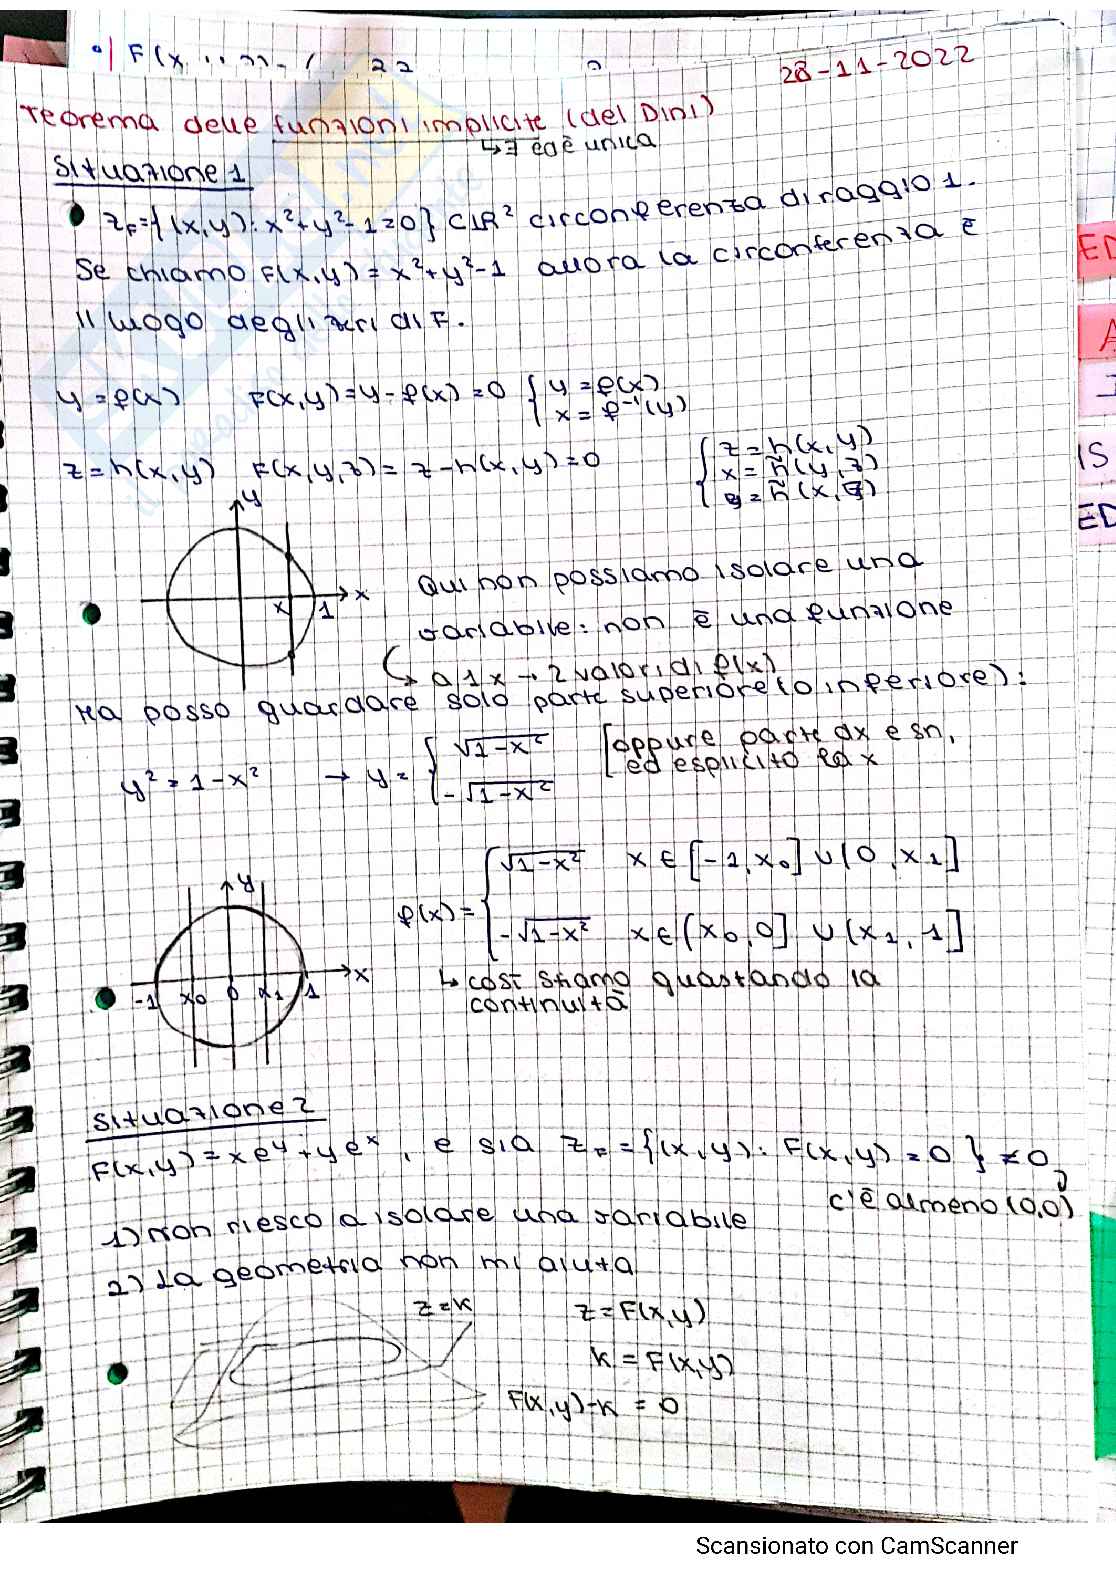 28-11-2022
Teorema delle funzioni implicite (del Dini)
↳ ∃ ed è unica
Situazione 1
Z_F={(x,y): x²+y²-1=0} ⊂ ℝ² circonferenza di raggio 1.
Se chiamo F(x,y) = x²+y²-1 allora la circonferenza è
il luogo degli zeri di F.
y = f(x) F(x,y)=y-f(x)=0 { y = f(x)
x = f⁻¹(y)
z = h(x,y) F(x,y,z) = z-h(x,y)=0 { z = h(x,y)
x = h̃(y,z)
y = h̃(x,z)
y
Qui non possiamo isolare una
x 1 x
variabile: non è una funzione
↳ a 1 x → 2 valori di f(x)
Ma posso guardare solo parte superiore (o inferiore):
y² = 1-x² → y = { √1-x² [oppure parte dx e sn,
-√1-x² ed esplicito la x
f(x) = { √1-x² x ∈ [-1,x₀] ∪ (0,x₁]
-√1-x² x ∈ (x₀,0] ∪ (x₁,1]
y
-1 x₀ 0 x₁ 1 x
↳ così stiamo guastando la
continuità
Situazione 2
F(x,y) = xe^y + ye^x, e sia Z_F = {(x,y): F(x,y) = 0} ≠ 0
c'è almeno (0,0)
1) Non riesco a isolare una variabile
2) La geometria non mi aiuta
z = k z = F(x,y)
k = F(x,y)
F(x,y)-k = 0
ED
A
IS
ED
Scansionato con CamScanner